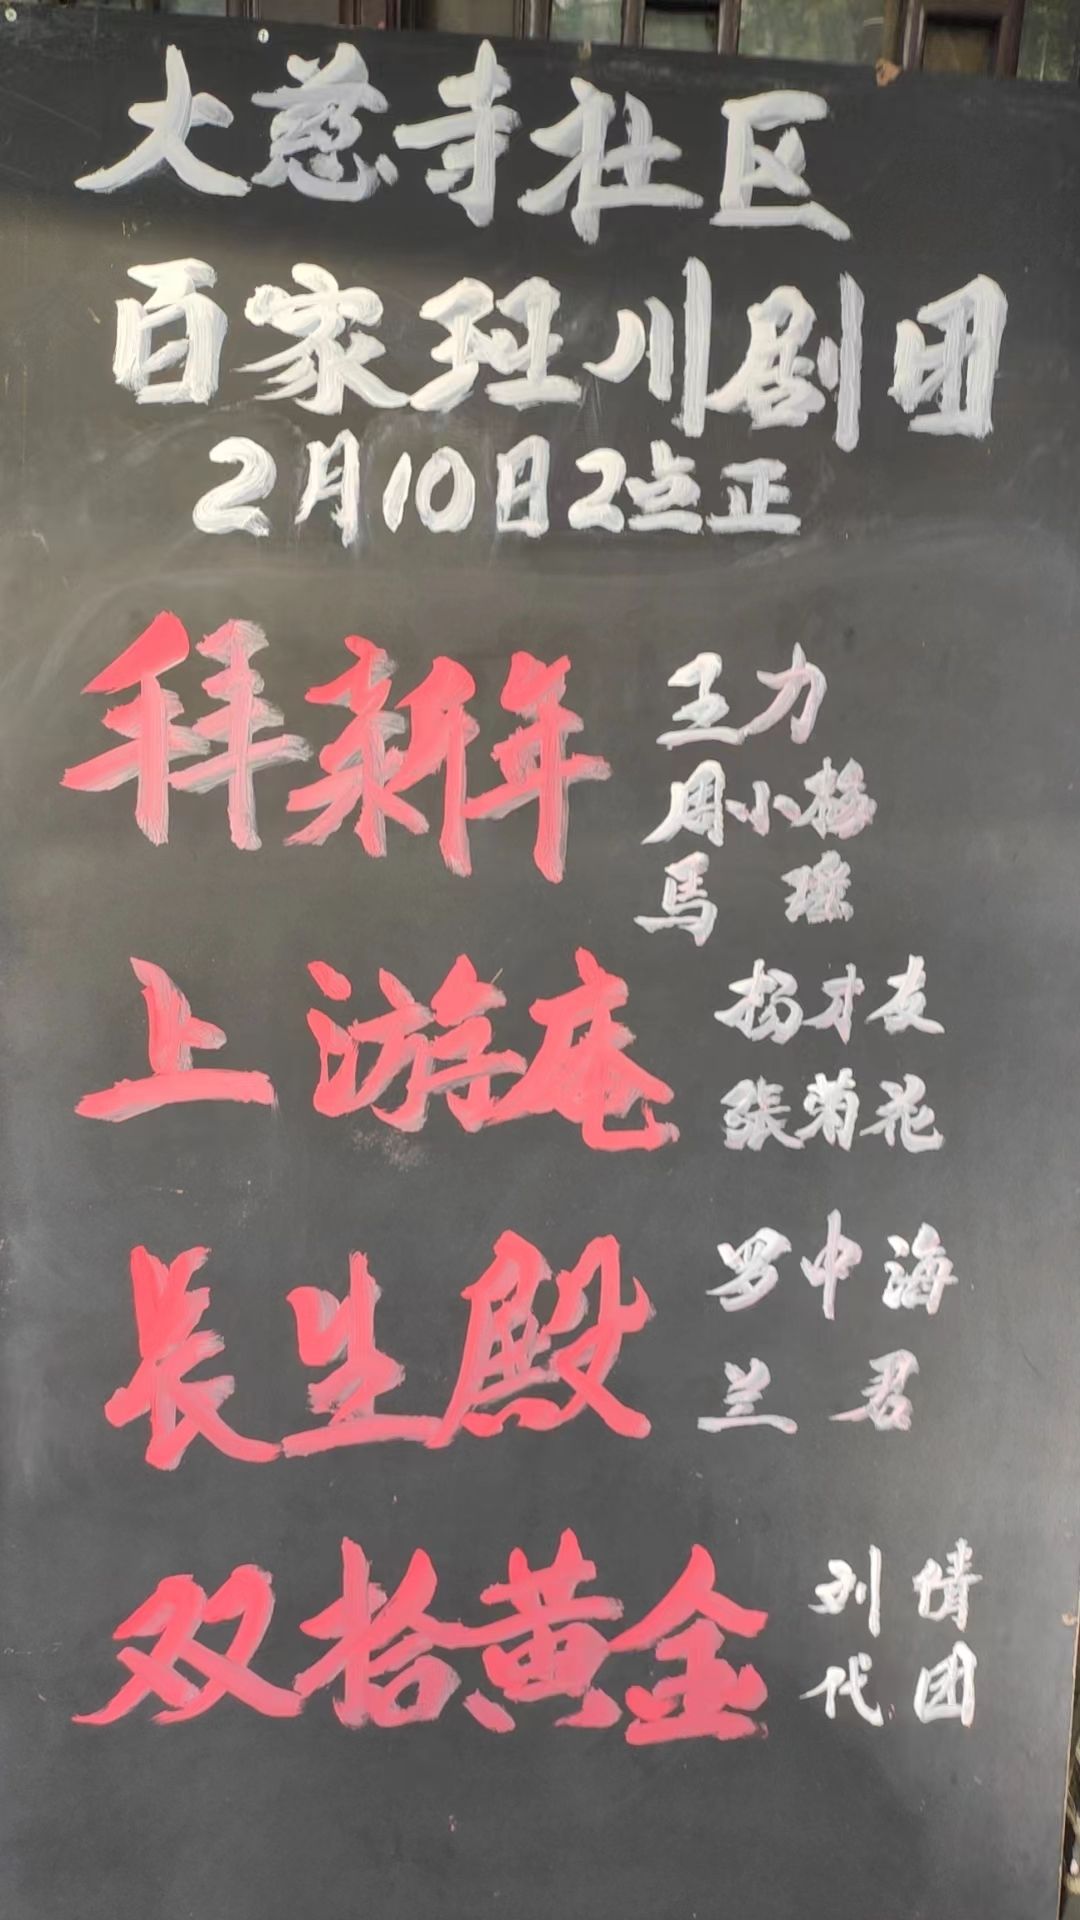 大慈寺社区
百家班川剧团
2月10日2点正
拜新年 王力
周小梅
馬瑶
上游庵 扬才友
張菊花
长生殿 罗中海
兰君
双拾黄金 刘倩
代团